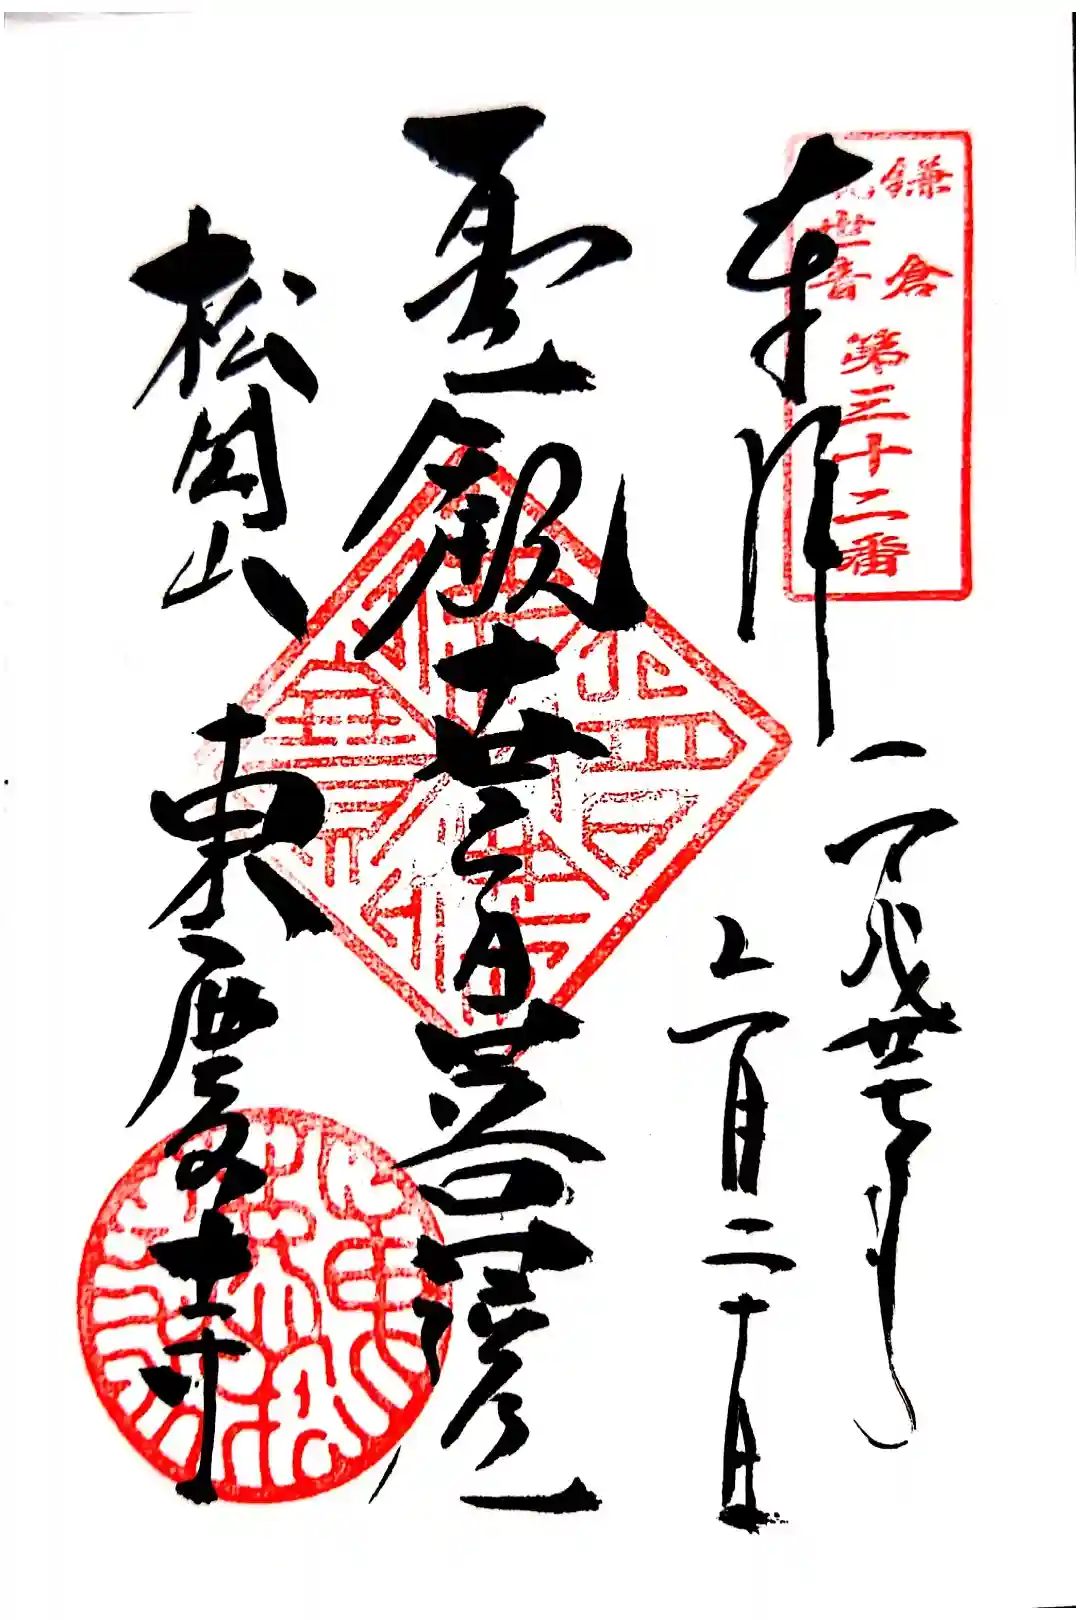 鎌倉
観世音
第三十二番
奉拝
平成廿七年
月二十日
聖観世音菩薩
松岡山 東慶寺